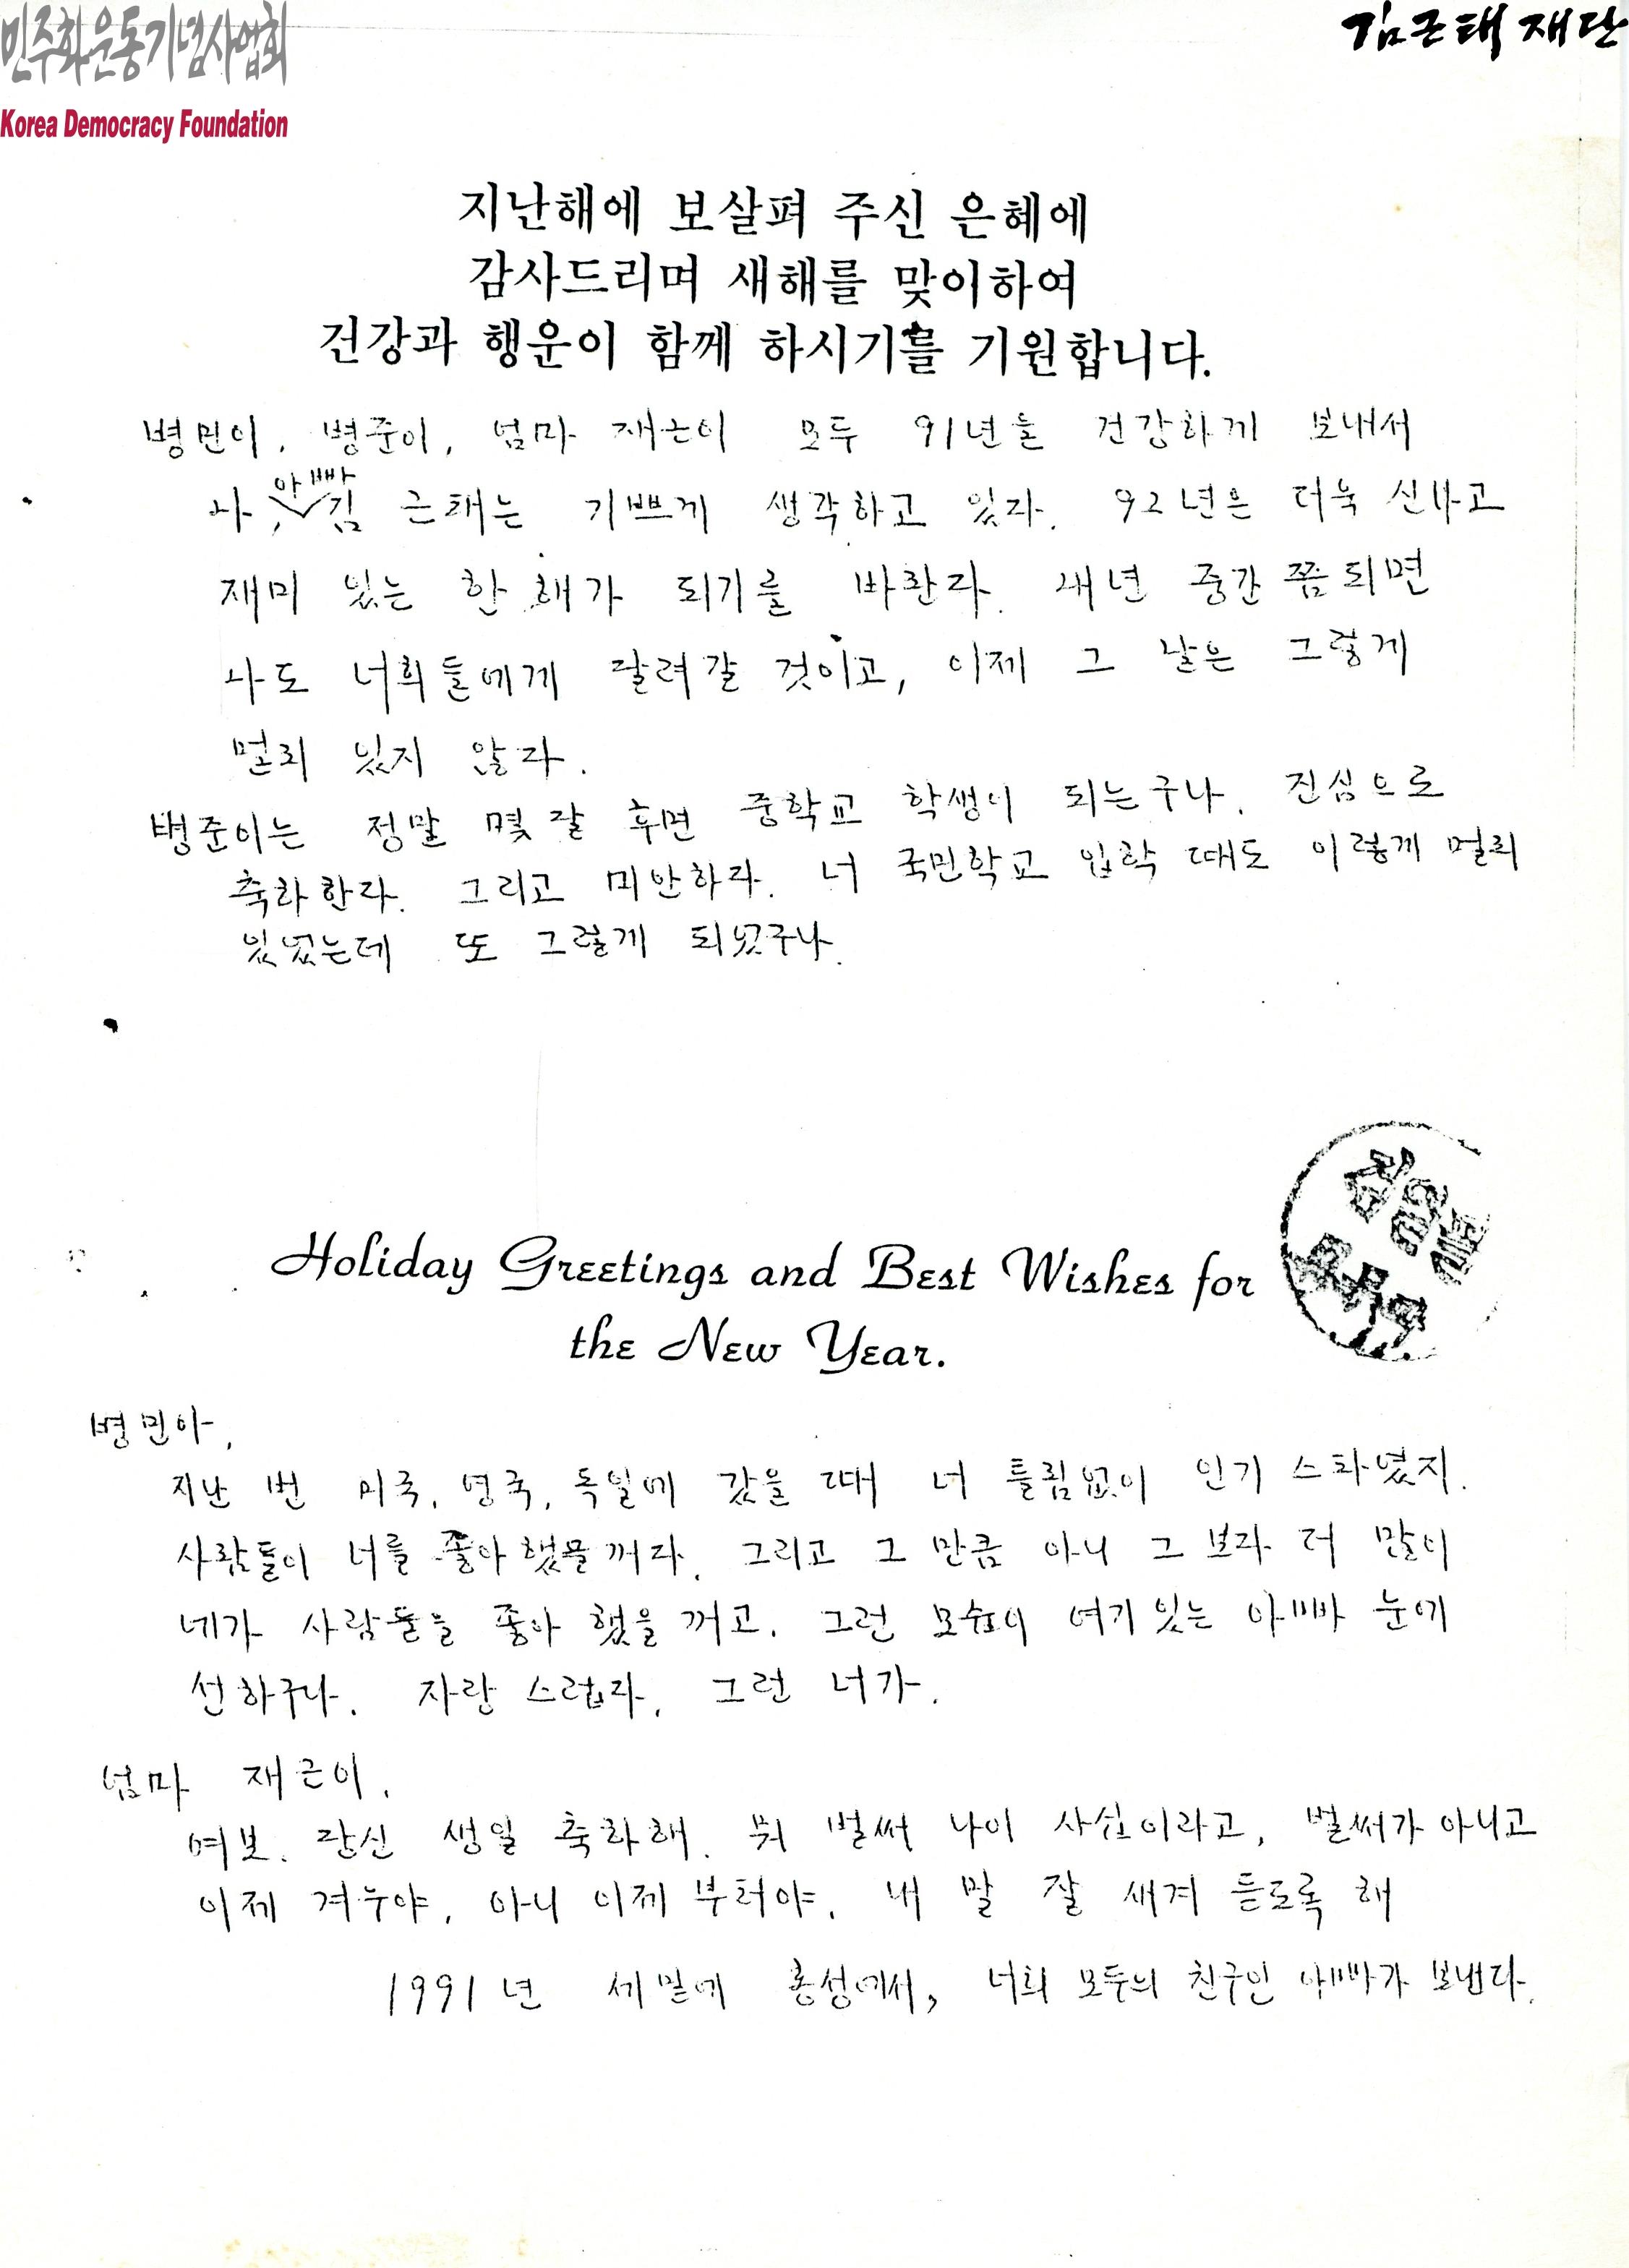 민주화운동기념사업회
Korea Democracy Foundation
김근태재단
지난해에 보살펴 주신 은혜에
감사드리며 새해를 맞이하여
건강과 행운이 함께 하시기를 기원합니다.
병민이, 병준이, 엄마 재근이 모두 91년을 건강하게 보내서
나, 아빠 김 근태는 기쁘게 생각하고 있다. 92년은 더욱 신나고
재미 있는 한 해가 되기를 바란다. 새년 중간쯤되면
나도 너희들에게 달려갈 것이고, 이제 그 날은 그렇게
멀리 있지 않다.
병준이는 정말 몇 달 후면 중학교 학생이 되는구나. 진심으로
축하한다. 그리고 미안하다. 너 국민학교 입학 때도 이렇게 멀리
있었는데 또 그렇게 되었구나.
Holiday Greetings and Best Wishes for
the New Year.
병민아,
지난 번 미국, 영국, 독일에 갔을 때 너 틀림없이 인기 스타였지.
사람들이 너를 좋아했을꺼다. 그리고 그 만큼 아니 그 보다 더 많이
네가 사람들을 좋아 했을 꺼고. 그런 모습이 여기 있는 아빠 눈에
선하구나. 자랑 스럽다, 그런 너가.
엄마 재근이.
여보. 당신 생일 축하해. 뭐 벌써 나이 사십이라고, 벌써가 아니고
이제 겨우야, 아니 이제 부터야. 내 말 잘 새겨 듣도록 해
1991년 세밑에 홍성에서, 너희 모두의 친구인 아빠가 보낸다.